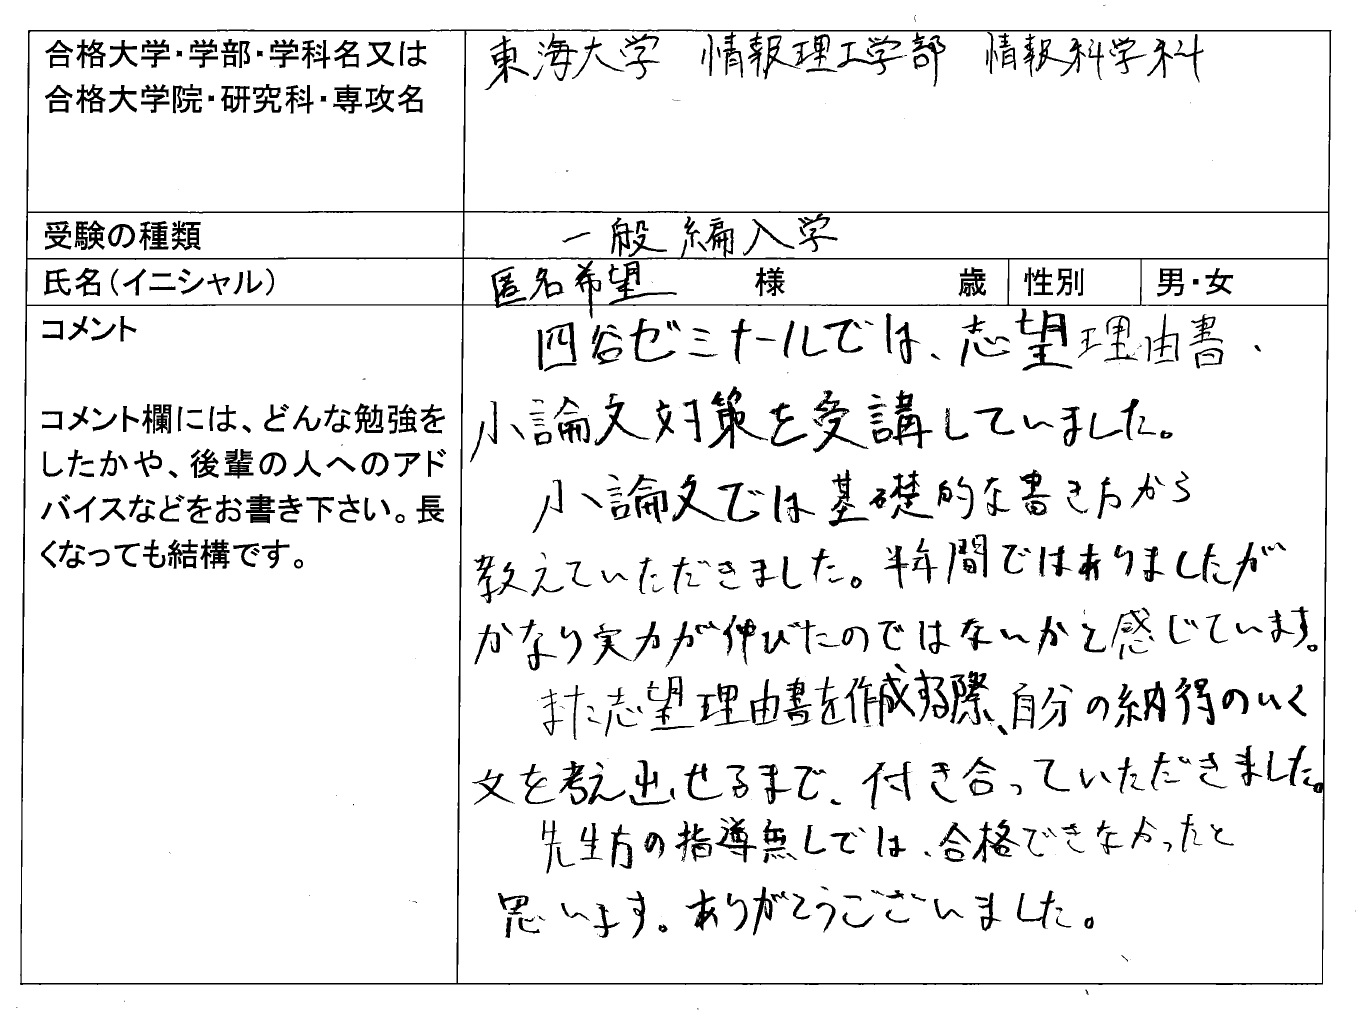 合格大学・学部・学科名又は
合格大学院・研究科・専攻名
東海大学 情報理工学部 情報科学科
受験の種類
一般編入学
氏名(イニシャル)
匿名希望 様 歳 性別 男・女
コメント
コメント欄には、どんな勉強を
したかや、後輩の人へのアド
バイスなどをお書き下さい。長
くなっても結構です。
四谷ゼミナールでは、志望理由書、
小論文対策を受講していました。
小論文では基礎的な書き方から
教えていただきました。半年間ではありましたが
かなり実力が伸びたのではないかと感じています。
また志望理由書を作成する際、自分の納得のいく
文を考え出せるまで、付き合っていただきました。
先生方の指導無しでは、合格できなかったと
思います。ありがとうございました。